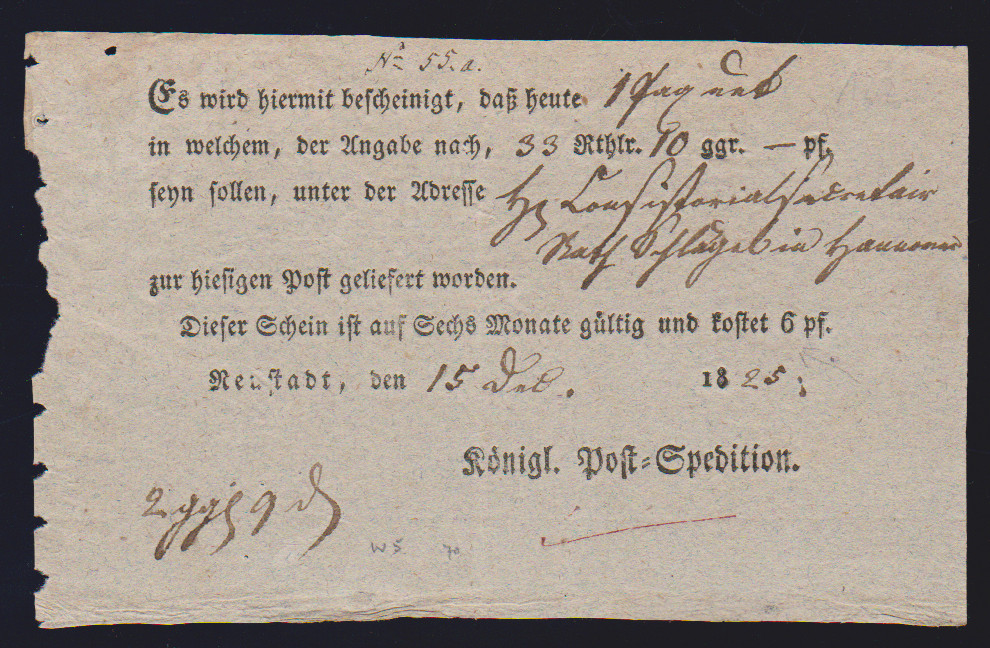 No 55.a.
Es wird hiermit bescheinigt, daß heute 1 Paquet
in welchem, der Angabe nach, 33 Rthlr. 10 ggr. — pf.
seyn sollen, unter der Adresse Hr Consistorialsecretair
Rath Schlägel in Hannover
zur hiesigen Post geliefert worden.
Dieser Schein ist auf Sechs Monate gültig und kostet 6 pf.
Neustadt, den 15 Dec. 1825;
Königl. Post-Spedition.
2 ggr 9 d
W 5 70